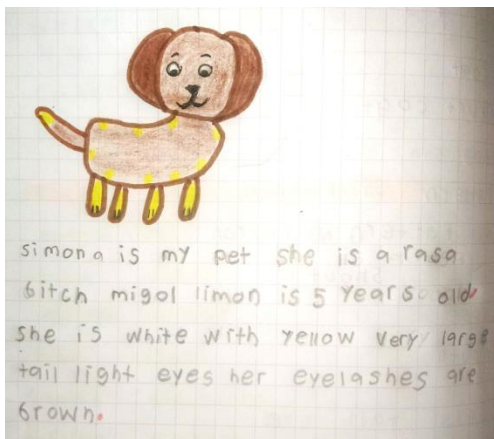 simona is my pet she is a rasa
bitch migol limon is 5 years old
she is white with yellow very large
tail light eyes her eyelashes are
brown.